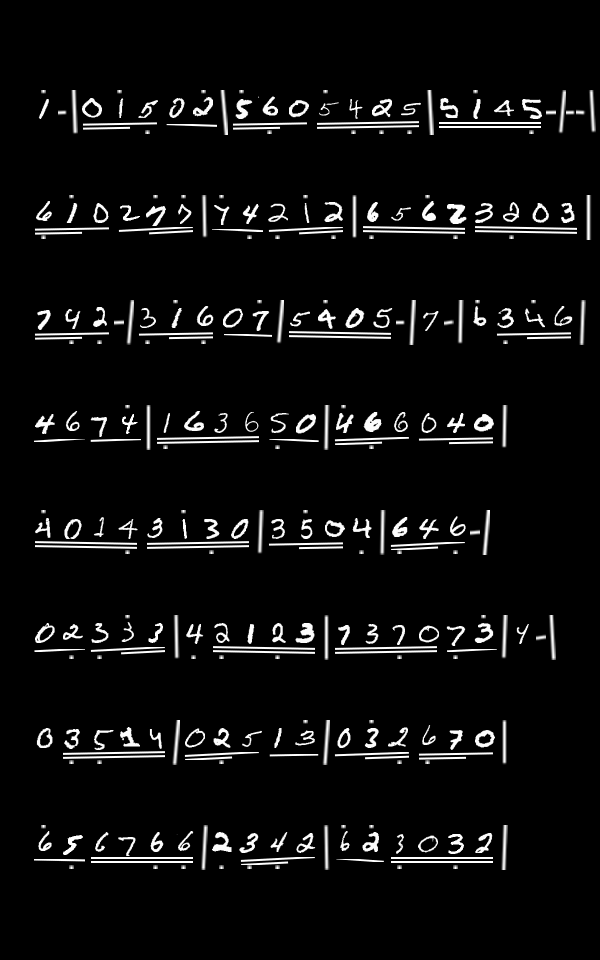 1-|01502|5605425|5145-|--|
610277|74212|65623203|
742-|31607|5405-|7-|6346|
4674|163650|466040|
40143130|3504|646-|
02333|42123|737073|4-|
03514|02513|032670|
656766|2342|623032|